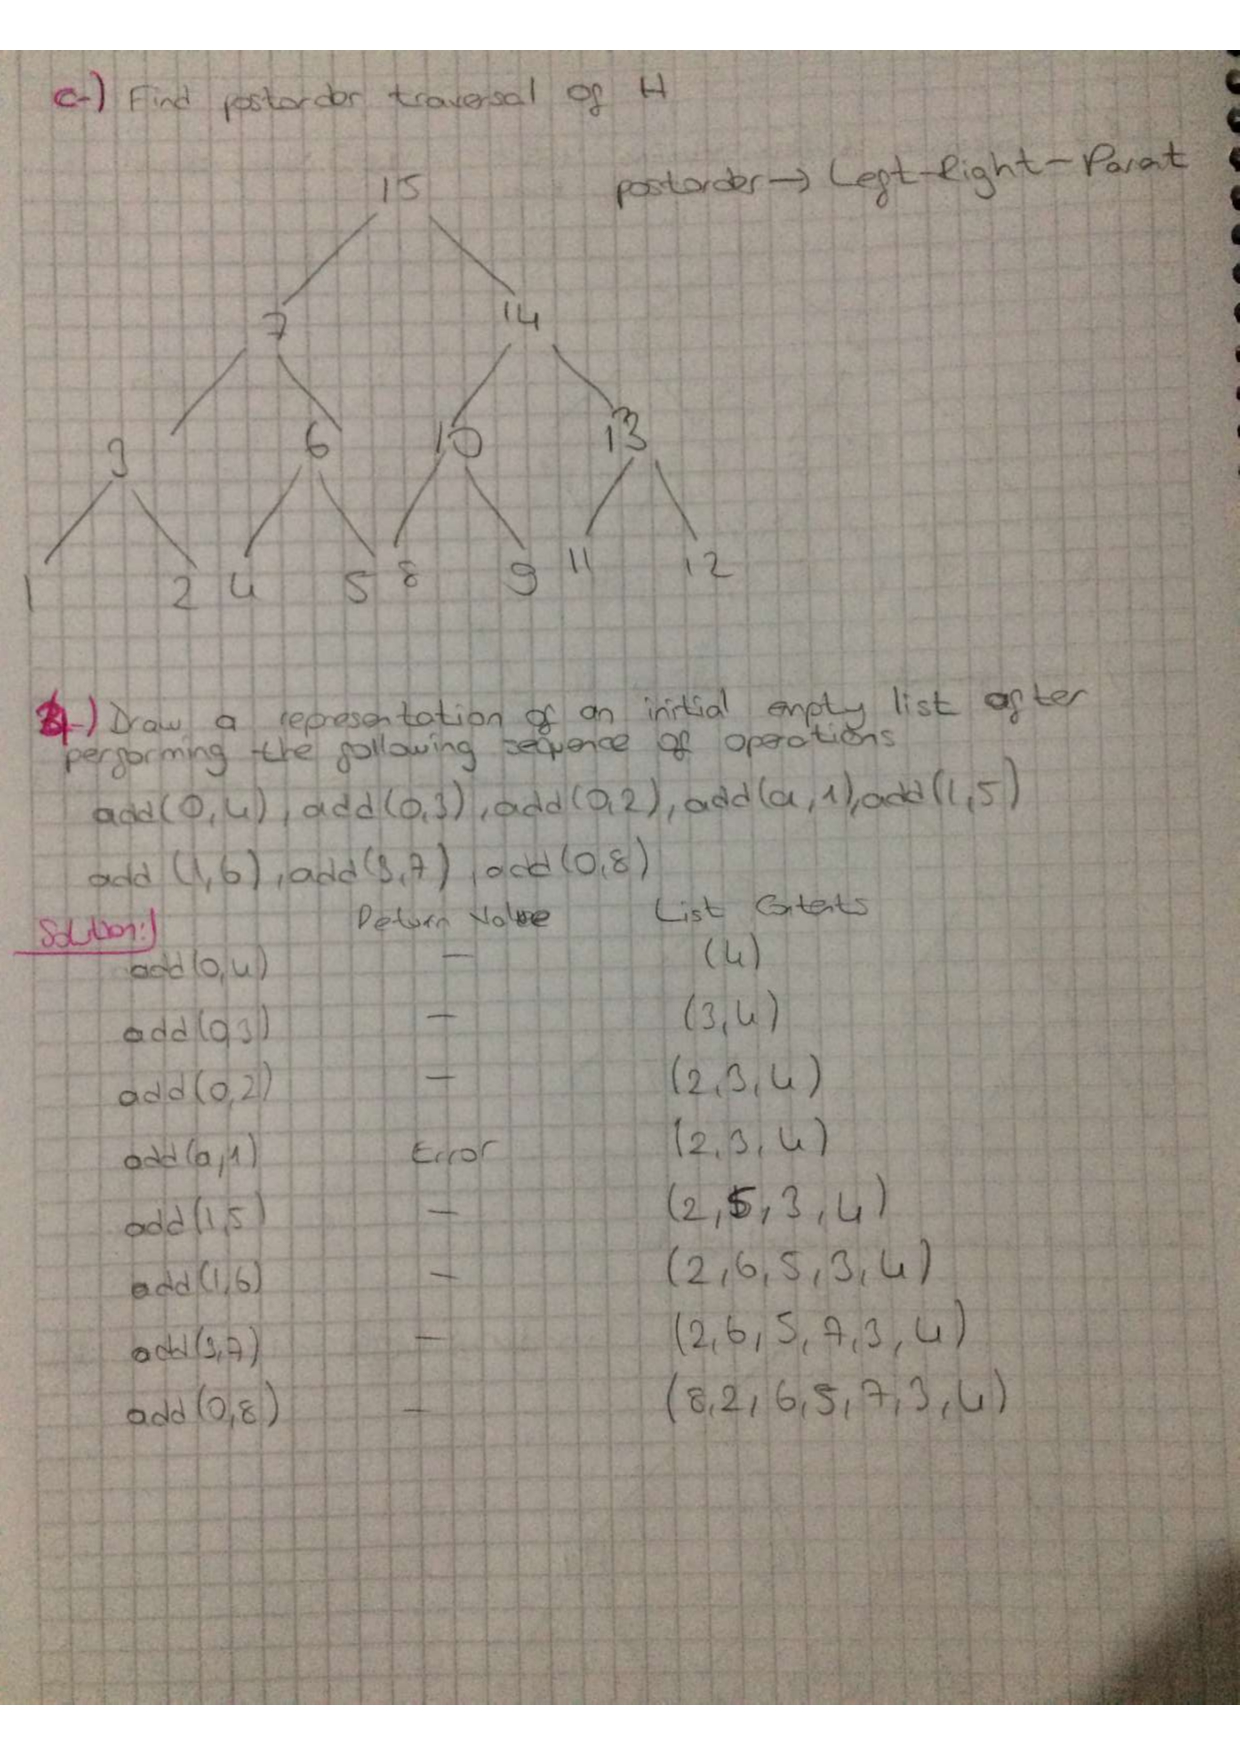 c-) Find postorder traversal of H
postorder → Left-Right-Parent
15
7 14
3 6 10 13
1 2 4 5 8 9 11 12
4-) Draw a representation of an initial empty list after
performing the following sequence of operations
add(0,4), add(0,3), add(0,2), add(a,1), add(1,5)
add (1,6), add(3,7), add(0,8)
Solution:) Return Value List Contents
add(0,4) — (4)
add(0,3) — (3,4)
add(0,2) — (2,3,4)
add(a,1) Error (2,3,4)
add(1,5) — (2,5,3,4)
add(1,6) — (2,6,5,3,4)
add(3,7) — (2,6,5,7,3,4)
add(0,8) — (8,2,6,5,7,3,4)